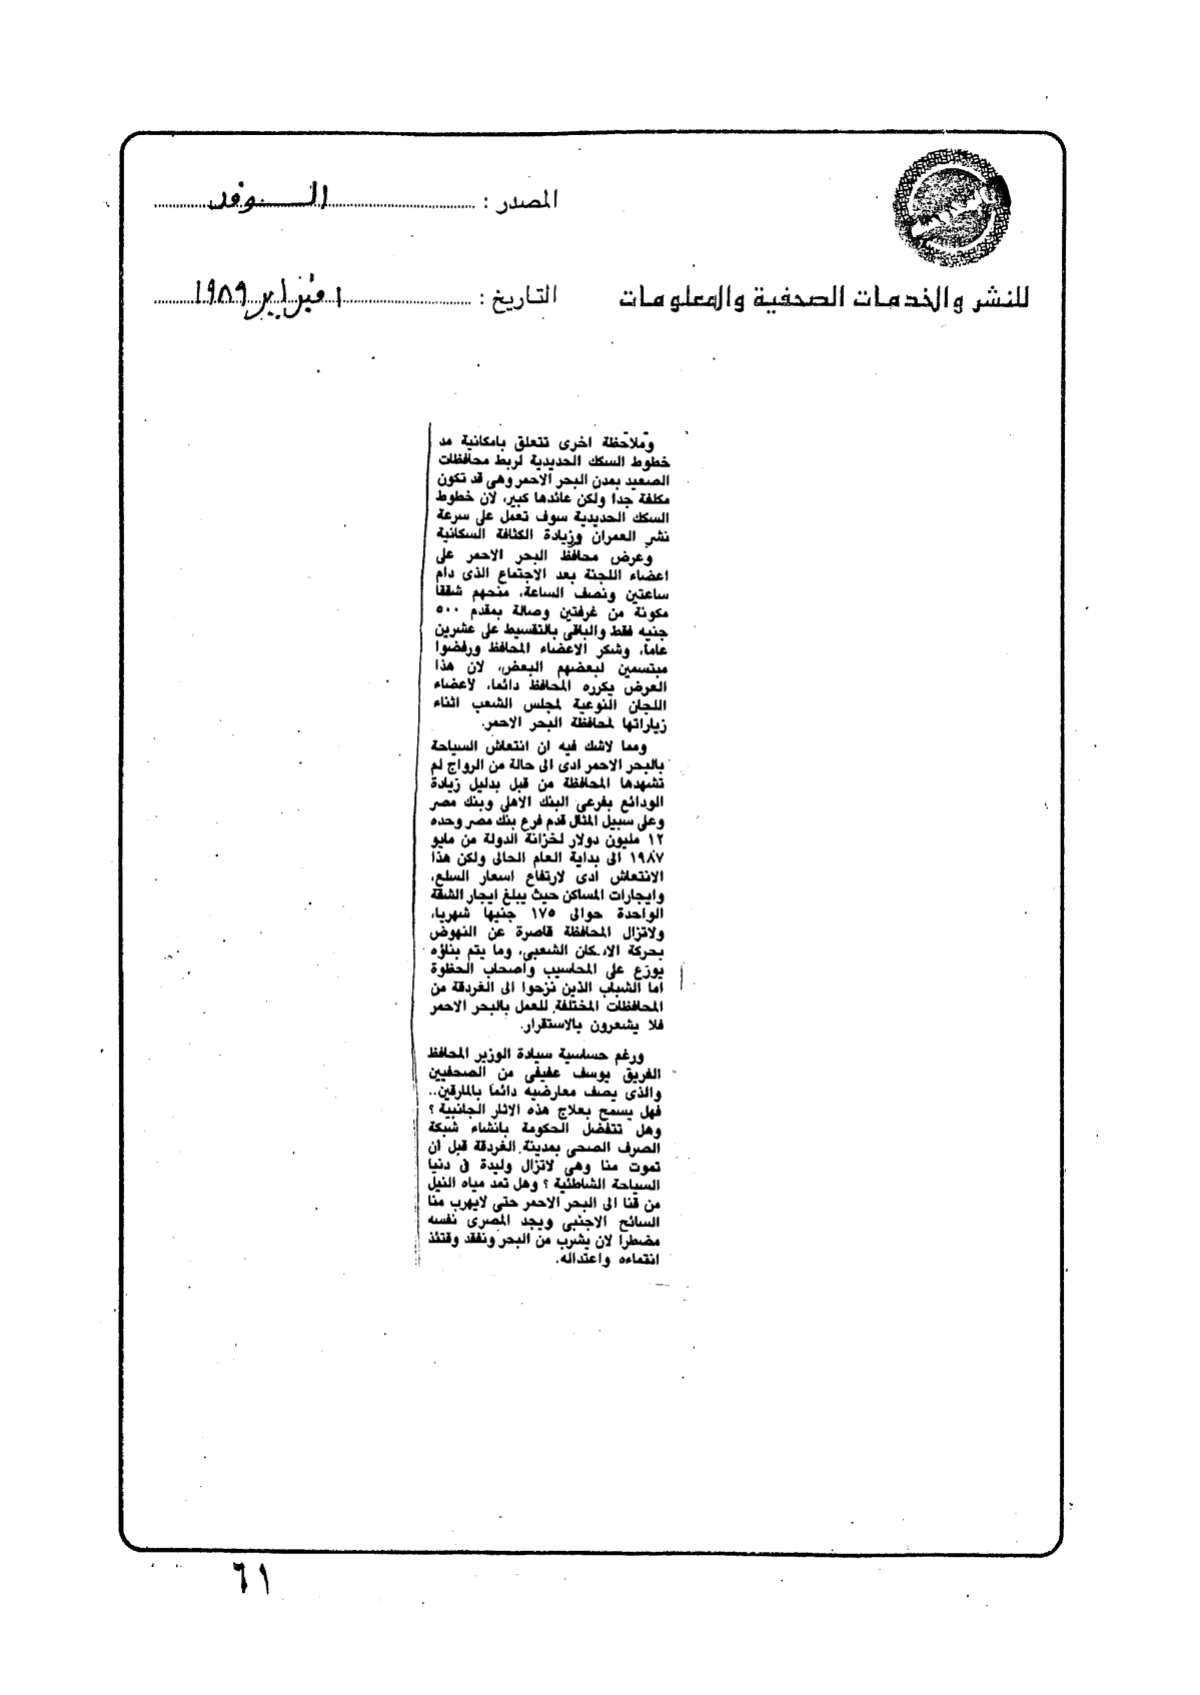 المصدر : الوفد
للنشر والخدمات الصحفية والمعلومات
التاريخ : ١ فبراير ١٩٨٩
وملاحظة اخرى تتعلق بامكانية مد
خطوط السكك الحديدية لربط محافظات
الصعيد بمدن البحر الاحمر وهى قد تكون
مكلفة جدا ولكن عائدها كبير، لان خطوط
السكك الحديدية سوف تعمل على سرعة
نشر العمران وزيادة الكثافة السكانية
وعرض محافظ البحر الاحمر على
اعضاء اللجنة بعد الاجتماع الذى دام
ساعتين ونصف الساعة، منحهم شققا
مكونة من غرفتين وصالة بمقدم ٥٠٠
جنيه فقط والباقى بالتقسيط على عشرين
عاما، وشكر الاعضاء المحافظ ورفضوا
مبتسمين لبعضهم البعض، لان هذا
العرض يكرره المحافظ دائما، لاعضاء
اللجان النوعية لمجلس الشعب اثناء
زياراتها لمحافظة البحر الاحمر.
ومما لاشك فيه ان انتعاش السياحة
بالبحر الاحمر ادى الى حالة من الرواج لم
تشهدها المحافظة من قبل بدليل زيادة
الودائع بفرعى البنك الاهلى وبنك مصر
وعلى سبيل المثال قدم فرع بنك مصر وحده
١٢ مليون دولار لخزانة الدولة من مايو
١٩٨٧ الى بداية العام الحالى ولكن هذا
الانتعاش ادى لارتفاع اسعار السلع،
وايجارات المساكن حيث يبلغ ايجار الشقة
الواحدة حوالى ١٧٥ جنيها شهريا،
ولاتزال المحافظة قاصرة عن النهوض
بحركة الاسكان الشعبى، وما يتم بناؤه
يوزع على المحاسيب واصحاب الحظوة
اما الشباب الذين نزحوا الى الغردقة من
المحافظات المختلفة للعمل بالبحر الاحمر
فلا يشعرون بالاستقرار.
ورغم حساسية سيادة الوزير المحافظ
الفريق يوسف عفيفى من الصحفيين
والذى يصف معارضيه دائما بالمارقين..
فهل يسمح بعلاج هذه الاثار الجانبية ؟
وهل تتفضل الحكومة بانشاء شبكة
الصرف الصحى بمدينة الغردقة قبل ان
تموت منا وهى لاتزال وليدة فى دنيا
السياحة الشاطئية ؟ وهل تمد مياه النيل
من قنا الى البحر الاحمر حتى لايهرب منا
السائح الاجنبى ويجد المصرى نفسه
مضطرا لان يشرب من البحر ونفقد وقتئذ
انتماءه واعتداله.
٦١